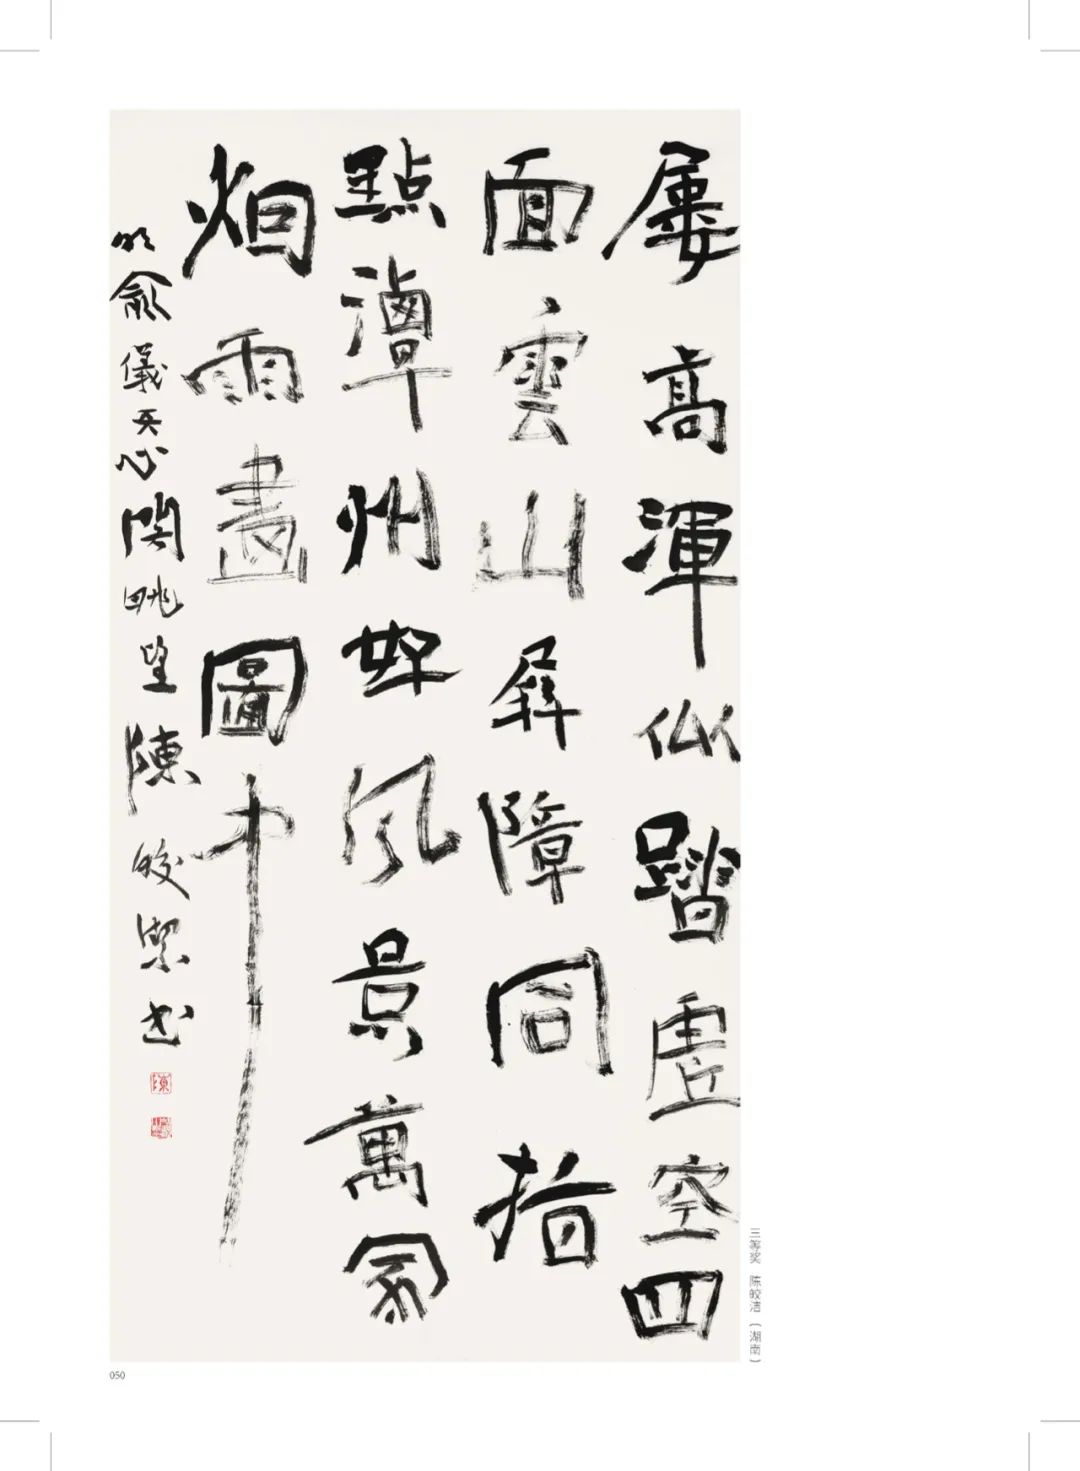 屢高渾似踏虛空四
面雲山屏障同指
點潭州好風景萬家
烟雨畫圖中
明俞儀天心閣眺望陳皎潔书
陳
三等奖 陈皎洁（湖南）
050